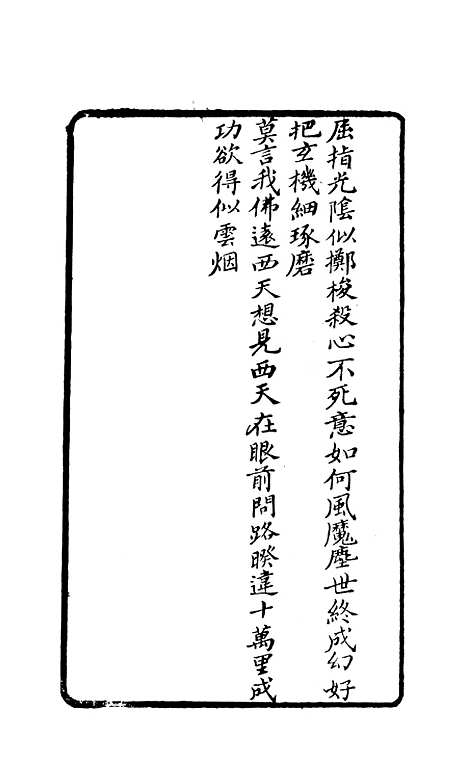 屈指光陰似擲梭殺心不死意如何風魔塵世終成幻好
把玄機細琢磨
莫言我佛遠西天想見西天在眼前問路暌違十萬里成
功欲得似雲烟